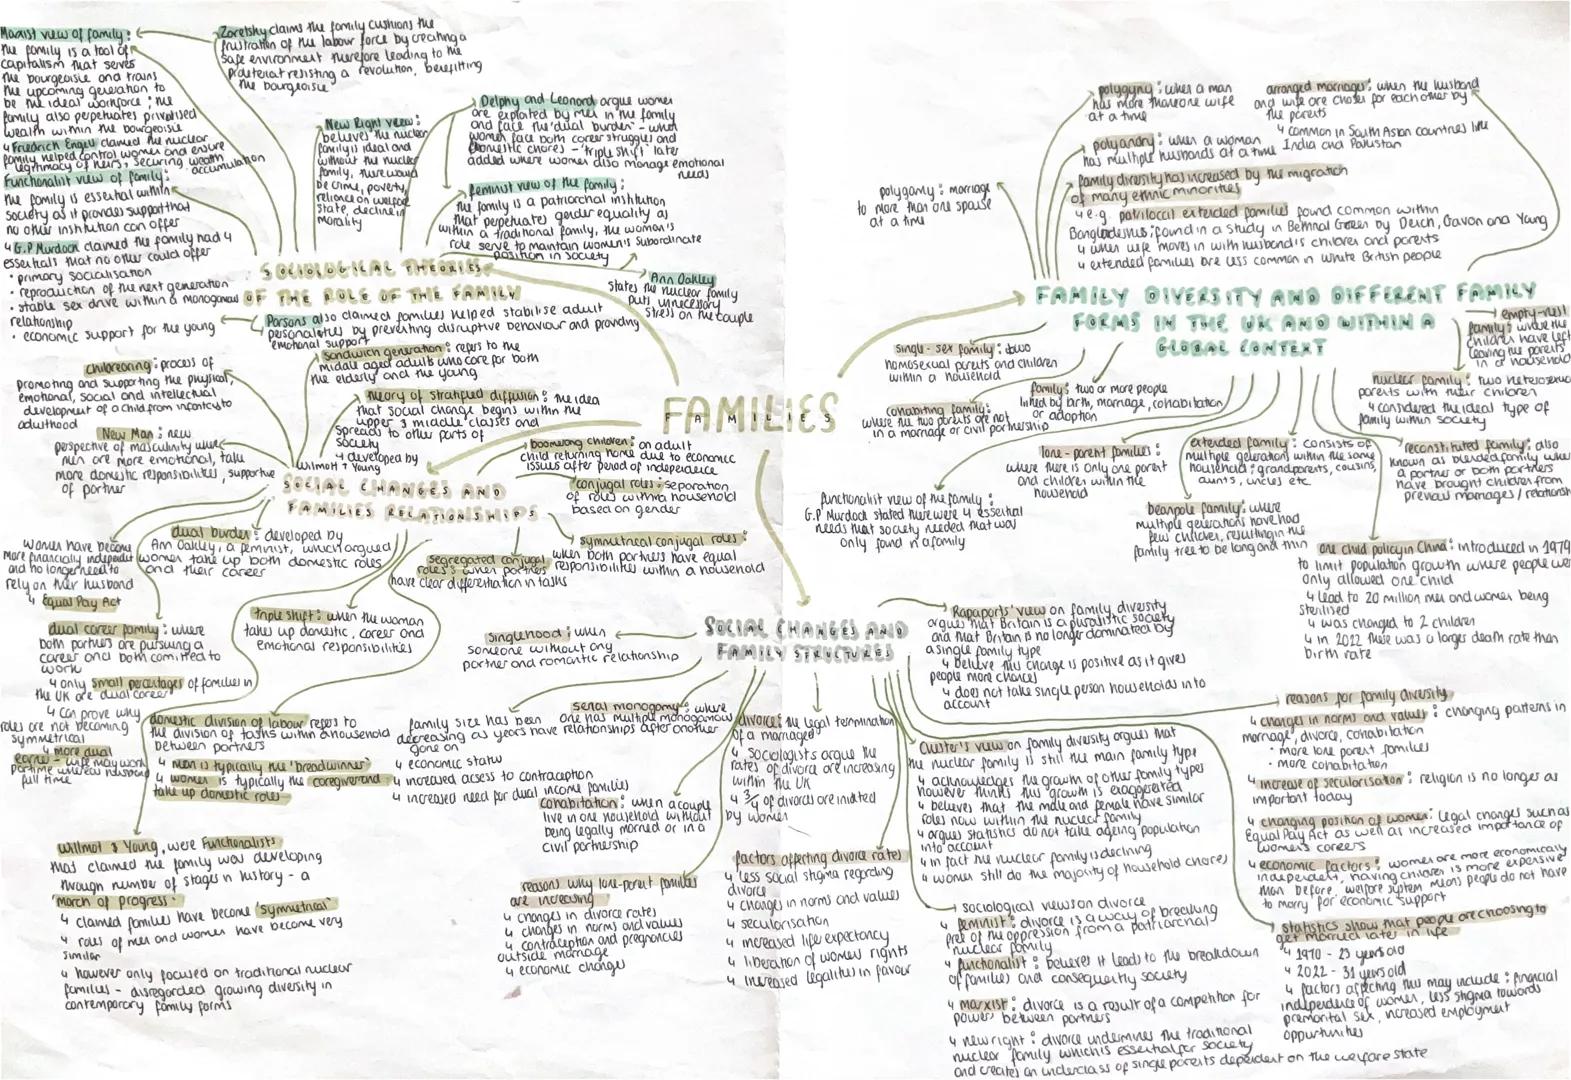 FAMILIES
SOCIOLOGICAL THEORIES
OF THE ROLE OF THE FAMILY
Marxist view of family:
the family is a tool of
capitalism that serves
the bourgeoisie and trains
the upcoming generation to
be the ideal workforce; the
family also perpetuates privatised
wealth within the bourgeoisie
↳ Friedrich Engels claimed the nuclear
family helped control women and ensure
legitimacy of heirs, securing wealth
accumulation
Functionalist view of family:
the family is essential within
society as it provides support that
no other institution can offer
↳ G.P Murdock claimed the family had 4
essentials that no other could offer
• primary socialisation
• reproduction of the next generation
• stable sex drive within a monogamous
relationship
• economic support for the young
Parsons also claimed families helped stabilise adult
personalities by preventing disruptive behaviour and providing
emotional support
Zaretsky claims the family cushions the
frustration of the labour force by creating a
safe environment therefore leading to the
proletariat resisting a revolution, benefitting
the bourgeoisie
New Right view:
believes the nuclear
family is ideal and
without the nuclear
family, there would
be crime, poverty,
reliance on welfare
state, decline in
morality
Delphy and Leonard argue women
are exploited by men in the family
and face the 'dual burden' - when
women face both career struggles and
domestic chores - 'triple shift' later
added where women also manage emotional
needs
feminist view of the family:
the family is a patriarchal institution
that perpetuates gender equality as
within a traditional family, the woman's
role serve to maintain women's subordinate
position in society
Ann Oakley
states the nuclear family
puts unnecessary
stress on the couple
SOCIAL CHANGES AND
FAMILIES RELATIONSHIPS
childrearing: process of
promoting and supporting the physical,
emotional, social and intellectual
development of a child from infancy to
adulthood
New Man: new
perspective of masculinity where
men are more emotional, take
more domestic responsibilities, supportive
of partner
sandwich generation: refers to the
middle aged adults who care for both
the elderly and the young
theory of stratified diffusion: the idea
that social change begins within the
upper & middle classes and
spreads to other parts of
society
↳ developed by
Wilmott & Young
boomerang children: an adult
child returning home due to economic
issues after period of independence
conjugal roles: separation
of roles within a household
based on gender
symmetrical conjugal roles:
when both partners have equal
responsibilities within a household
segregated conjugal
roles: when partners
have clear differentiation in tasks
dual burden: developed by
Ann Oakley, a feminist, which argued
women take up both domestic roles
and their career
women have become
more financially independent
and no longer need to
rely on their husband
↳ Equal Pay Act
triple shift: when the woman
takes up domestic, career and
emotional responsibilities
dual career family: where
both partners are pursuing a
career and both comitted to
work
↳ only small percentages of families in
the UK are dual career
↳ Can prove why
roles are not becoming
symmetrical
↳ more dual
earner - wife may work
part time whereas husband
full time
domestic division of labour refers to
the division of tasks within a household
between partners
↳ man is typically the 'breadwinner'
↳ women is typically the caregiver and
take up domestic roles
Willmot & Young, were Functionalists
that claimed the family was developing
through number of stages in history - a
'march of progress'
↳ claimed families have become 'symmetrical'
↳ roles of men and women have become very
similar
↳ however only focused on traditional nuclear
families - disregarded growing diversity in
contemporary family forms
SOCIAL CHANGES AND
FAMILY STRUCTURES
singlehood: when
someone without any
partner and romantic relationship
family size has been
decreasing as years have
gone on
↳ economic status
↳ increased access to contraception
↳ increased need for dual income families
serial monogamy: where
one has multiple monogamous
relationships after another
cohabitation: when a couple
live in one household without
being legally married or in a
civil partnership
reasons why lone-parent families
are increasing
↳ changes in divorce rates
↳ changes in norms and values
↳ contraception and pregnancies
outside marriage
↳ economic changes
divorce: the legal termination
of a marriage
↳ sociologists argue the
rates of divorce are increasing
within the UK
↳ 3/4 of divorces are initiated
by women
factors affecting divorce rates
↳ less social stigma regarding
divorce
↳ changes in norms and values
↳ secularisation
↳ increased life expectancy
↳ liberation of women rights
↳ increased legalities in favour
Rapaports' view on family diversity
argues that Britain is a pluralistic society
and that Britain is no longer dominated by
a single family type
↳ believe this change is positive as it gives
people more chances
↳ does not take single person households into
account
Chester's view on family diversity argues that
the nuclear family is still the main family type
↳ acknowledges the growth of other family types
however thinks this growth is exaggerated
↳ believes that the male and female have similar
roles now within the nuclear family
↳ argues statistics do not take ageing population
into account
↳ in fact the nuclear family is declining
↳ women still do the majority of household chores
sociological views on divorce
↳ feminist: divorce is a way of breaking
free of the oppression from a patriarchal
nuclear family
↳ functionalist: believes it leads to the breakdown
of families and consequently society
↳ marxist: divorce is a result of a competition for
power between partners
↳ new right: divorce undermines the traditional
nuclear family which is essential for society
and creates an underclass of single parents dependent on the welfare state
reasons for family diversity
↳ changes in norms and values: changing patterns in
marriage, divorce, cohabitation
• more lone parent families
• more cohabitation
↳ increase of secularisation: religion is no longer as
important today
↳ changing position of women: legal changes such as
Equal Pay Act as well as increased importance of
women's careers
↳ economic factors: women are more economically
independent, having children is more expensive
than before, welfare system means people do not have
to marry for economic support
statistics show that people are choosing to
get married later in life
↳ 1970 - 23 years old
↳ 2022 - 31 years old
↳ factors affecting this may include: financial
independence of women, less stigma towards
premarital sex, increased employment
oppurtunities
FAMILY DIVERSITY AND DIFFERENT FAMILY
FORMS IN THE UK AND WITHIN A
GLOBAL CONTEXT
polygamy: marriage
to more than one spouse
at a time
polygyny: when a man
has more than one wife
at a time
arranged marriages: when the husband
and wife are chosen for each other by
the parents
↳ common in South Asian countries like
India and Pakistan
polyandry: when a woman
has multiple husbands at a time
family diversity has increased by the migration
of many ethnic minorities
↳ e.g. patrilocal extended families found common within
Bangladeshis; found in a study in Bethnal Green by Dench, Gavon and Young
↳ when wife moves in with husband's children and parents
↳ extended families are less common in White British people
empty-nest
family: where the
children have left
leaving the parents
in a household
single-sex family: two
homosexual parents and children
within a household
cohabiting family:
where the two parents are not
in a marriage or civil partnership
family: two or more people
linked by birth, marriage, cohabitation
or adoption
nuclear family: two heterosexual
parents with their children
↳ considered the ideal type of
family within society
lone-parent families:
where there is only one parent
and children within the
household
extended family: consists of
multiple generations within the same
household: grandparents, cousins,
aunts, uncles etc
reconstituted family: also
known as blended family when
a partner or both partners
have brought children from
previous marriages / relationsh
functionalist view of the family:
G.P Murdock stated there were 4 essential
needs that society needed that was
only found in a family
beanpole family: where
multiple generations have had
few children, resulting in the
family tree to be long and thin
one child policy in China: introduced in 1979
to limit population growth where people were
only allowed one child
↳ lead to 20 million men and women being
sterilised
↳ was changed to 2 children
↳ in 2022 there was a larger death rate than
birth rate